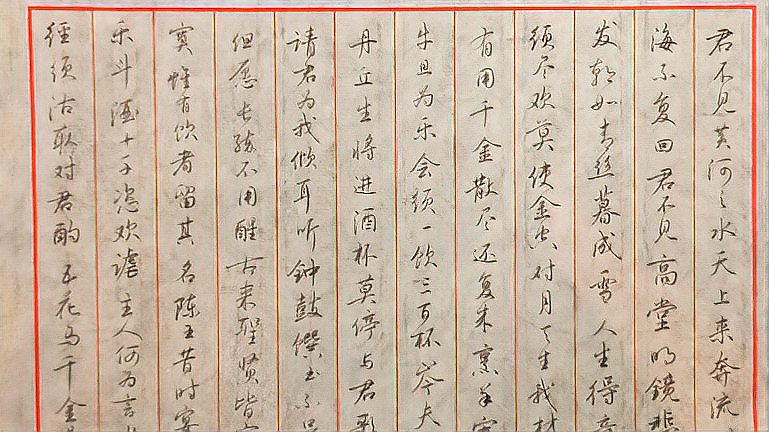 君不见黄河之水天上来奔流
海不复回君不见高堂明镜悲
发朝如青丝暮成雪人生得意
须尽欢莫使金尊空对月天生我材
有用千金散尽还复来烹羊宰
牛且为乐会须一饮三百杯岑夫
丹丘生将进酒杯莫停与君歌
请君为我倾耳听钟鼓馔玉不足
但愿长醉不用醒古来圣贤皆寂
寞惟有饮者留其名陈王昔时宴
乐斗酒十千恣欢谑主人何为言
径须沽取对君酌五花马千金